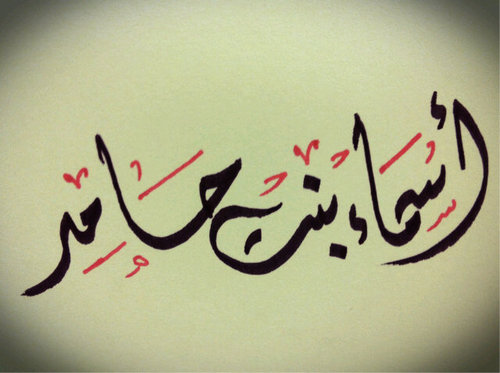 أسماء بنت حامد